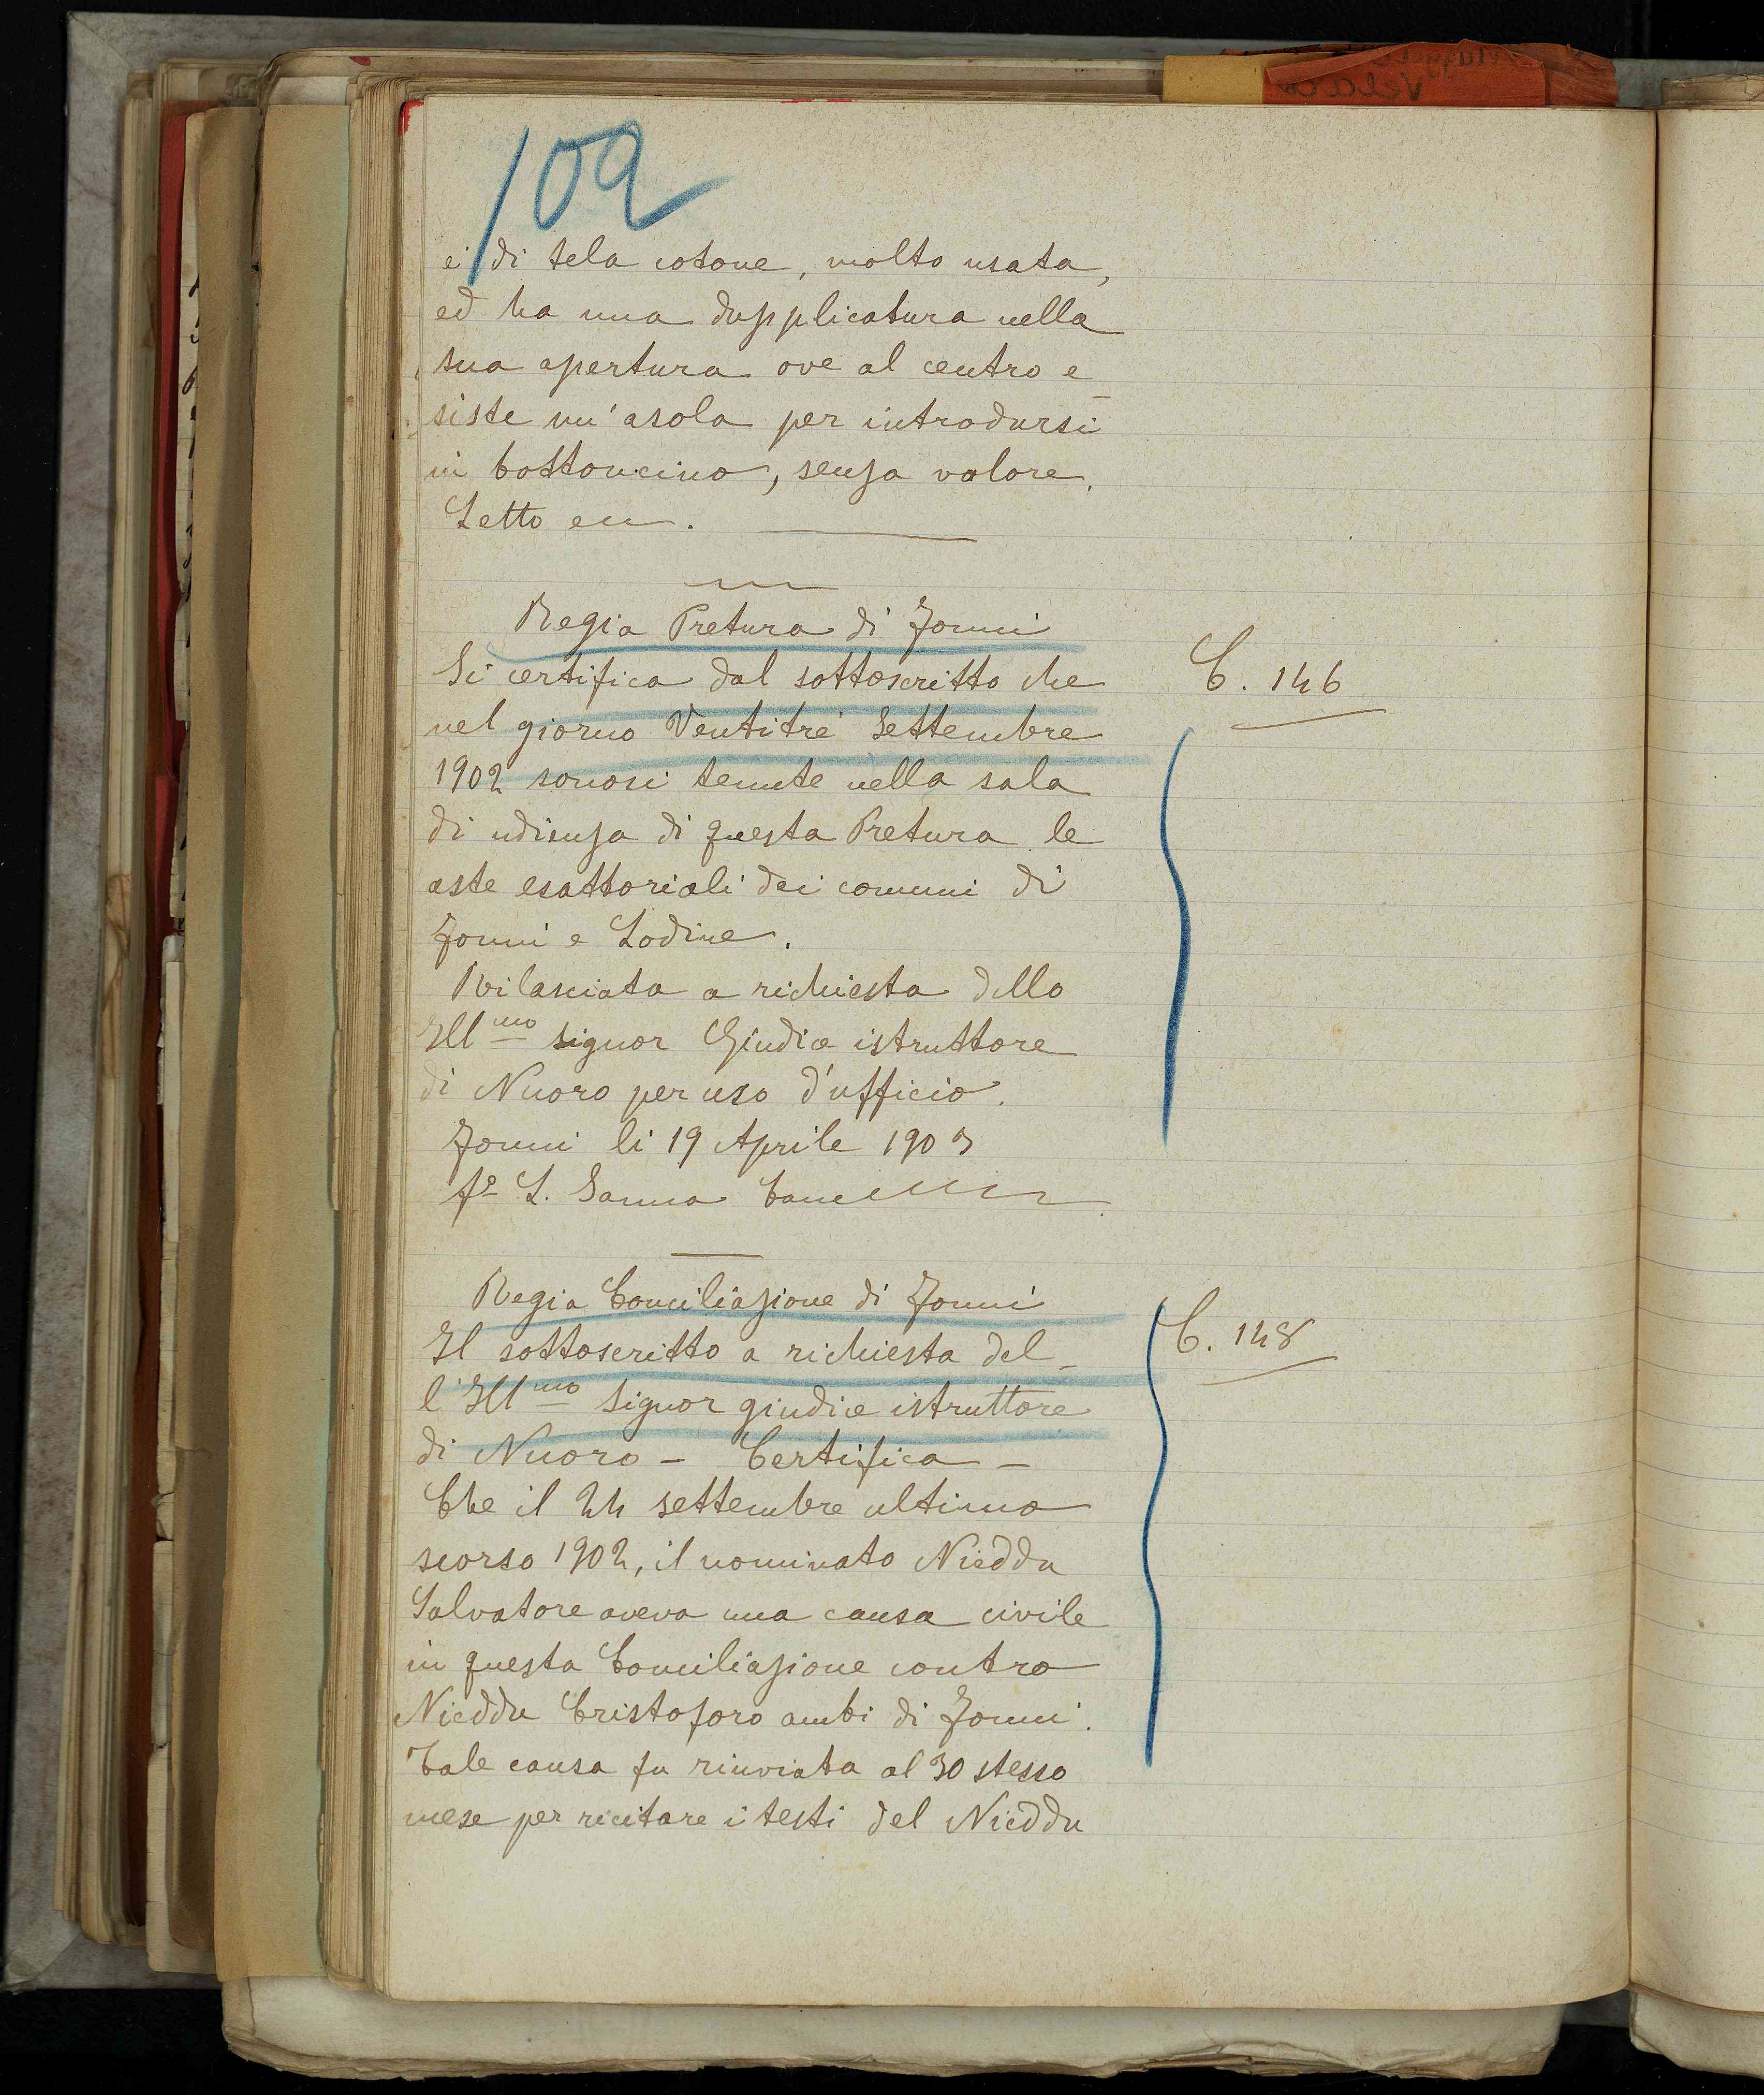 102
è di tela cotone, molto usata,
ed ha una dupplicatura nella
sua apertura ove al centro e_
siste un'asola per introdursi
un bottoncino, senza valore.
Letto ecc.
Regia Pretura di Fonni
Si certifica dal sottoscritto che
C. 146
nel giorno Ventitrè Settembre
1902 sonosi tenute nella sala
di udienza di questa Pretura le
aste esattoriali dei comuni di
Fonni e Lodine.
Rilasciata a richiesta dello
Ill mo signor Giudice istruttore
di Nuoro per uso d'ufficio.
Fonni li 19 Aprile 1903
fº L. Sanna Canc
Regia Conciliazione di Fonni
Il sottoscritto a richiesta del_
C. 148
l'Ill mo Signor giudice istruttore
di Nuoro - Certifica -
Che il 24 settembre ultimo
scorso 1902, il nominato Nieddu
Salvatore aveva una causa civile
in questa Conciliazione contro
Nieddu Cristoforo ambi di Fonni.
Tale causa fu rinviata al 30 stesso
mese per ricitare i testi del Nieddu